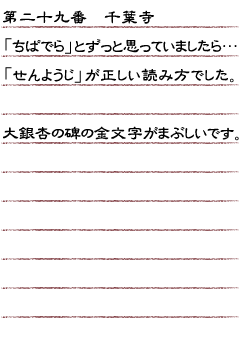 第二十九番　千葉寺
「ちばでら」とずっと思っていましたら…
「せんようじ」が正しい読み方でした。
大銀杏の碑の金文字がまぶしいです。